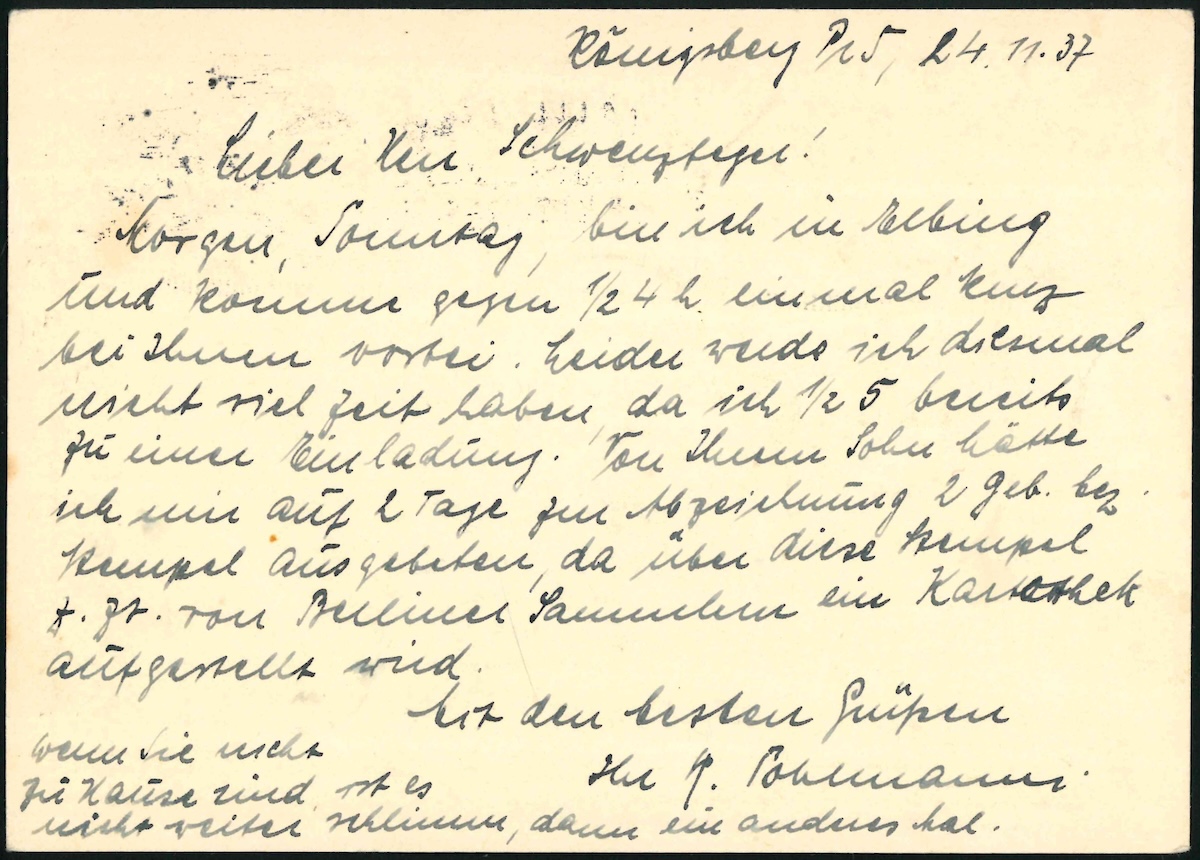 Königsberg Pr 5, 24.11.37
Lieber Herr Schwenzfeger!
Morgen, Sonntag, bin ich in Elbing
und komme gegen 1/2 4 h einmal kurz
bei Ihnen vorbei. Leider werde ich diesmal
nicht viel Zeit haben, da ich 1/2 5 bereits
zu einer Einladung. Von Ihrem Sohn hätte
ich mir auf 2 Tage zur Abzeichnung 2 Geb. bez.
Stempel ausgebeten, da über diese Stempel
z. Zt. von Berliner Sammlern ein Kartothek
aufgestellt wird.
Mit den besten Grüßen
Ihr K. Pohlmann.
wenn Sie nicht
zu Hause sind, ist es
nicht weiter schlimm, dann ein anderes Mal.